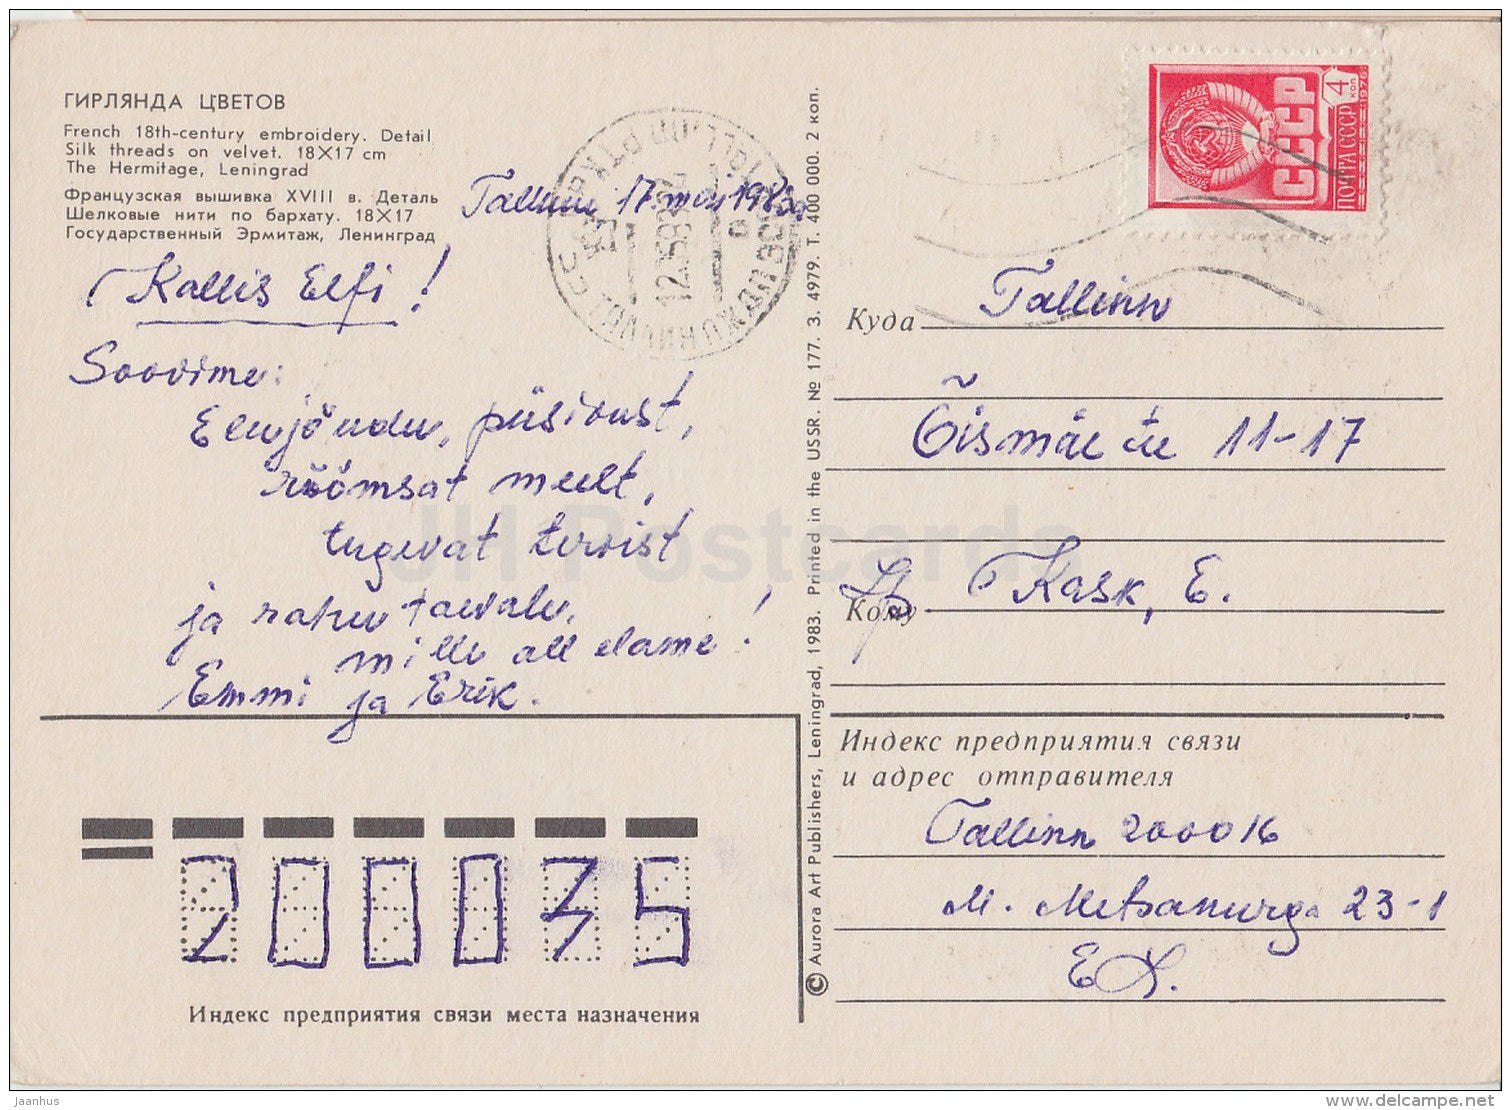 ГИРЛЯНДА ЦВЕТОВ
French 18th-century embroidery. Detail
Silk threads on velvet. 18×17 cm
The Hermitage, Leningrad
Французская вышивка XVIII в. Деталь
Шелковые нити по бархату. 18×17
Государственный Эрмитаж, Ленинград
Tallinn 17. mai
Kallis Elfi!
Soovime:
Elujõudu, püsivust,
rõõmsat meelt,
tugevat tervist
ja rahu taevalu,
mille all elame!
Emmi ja Erik.
200035
Индекс предприятия связи места назначения
© Aurora Art Publishers, Leningrad, 1983. Printed in the USSR. № 177. З. 4979. Т. 400 000. 2 коп.
4 коп
1976
СССР
ПОЧТА СССР
Куда Tallinn
Õismäe tee 11-17
Кому Kask, E.
Индекс предприятия связи
и адрес отправителя
Tallinn 200016
M. Metsanurga 23-1
JH Postcards
Jaanhus
delcampe.net